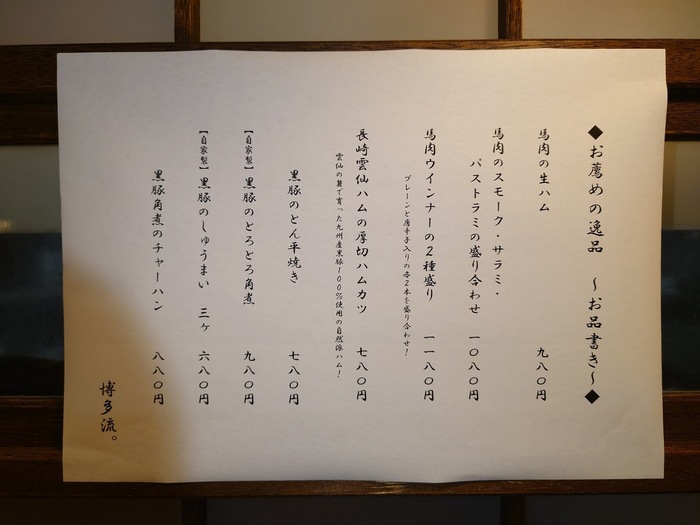 ◆お薦めの逸品　～お品書き～◆
馬肉の生ハム　九八〇円
馬肉のスモーク・サラミ・
パストラミの盛り合わせ　一〇八〇円
馬肉ウインナーの２種盛り　一一八〇円
プレーンと唐辛子入りの各２本を盛り合わせ！
長崎雲仙ハムの厚切ハムカツ　七八〇円
雲仙の麓で育った九州産黒豚１００％使用の自然派ハム！
黒豚のとん平焼き　七八〇円
【自家製】黒豚のとろとろ角煮　九八〇円
【自家製】黒豚のしゅうまい　三ヶ　六八〇円
黒豚角煮のチャーハン　八八〇円
博多流。